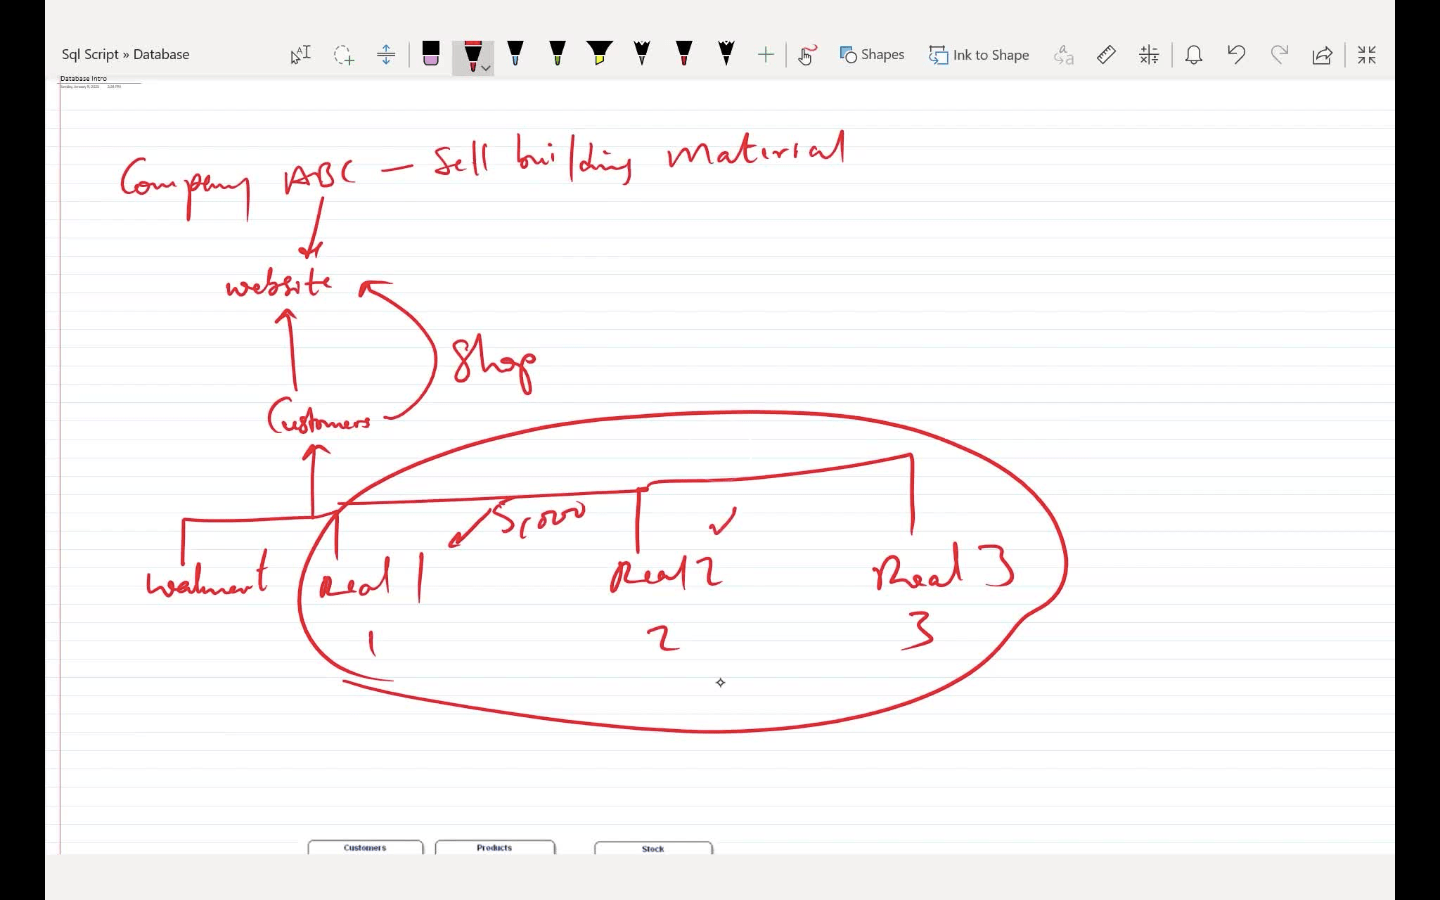 Sql Script » Database
Shapes
Ink to Shape
Database Intro
Company ABC — Sell building Material
website
Shop
Customers
Walmart Real 1 Real 2 Real 3
1 2 3
Customers Products Stock